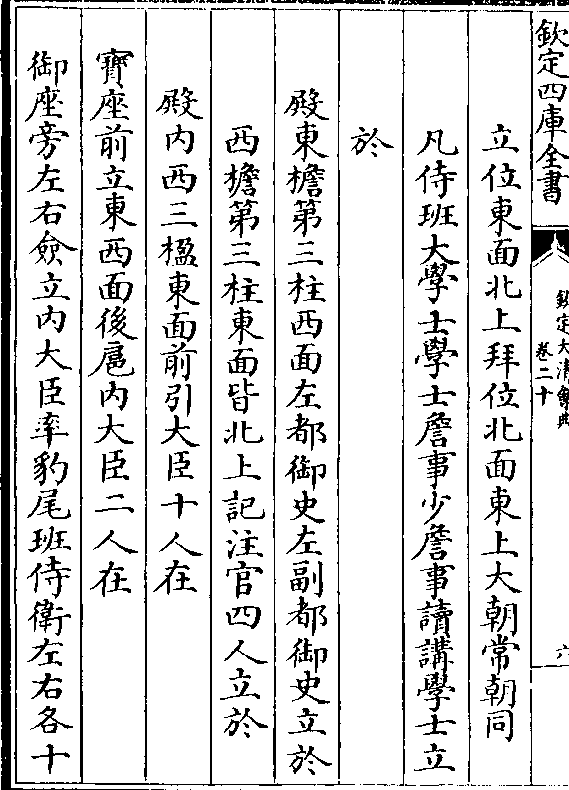 欽定四庫全書
欽定大清會典
卷二十
六
立位東面北上拜位北面東上大朝常朝同
凡侍班大學士學士詹事少詹事讀講學士立
於
殿東檐第三柱西面左都御史左副都御史立於
西檐第三柱東面皆北上記注官四人立於
殿内西三楹東面前引大臣十人在
寶座前立東西面後扈内大臣二人在
御座旁左右僉立内大臣率豹尾班侍衛左右各十